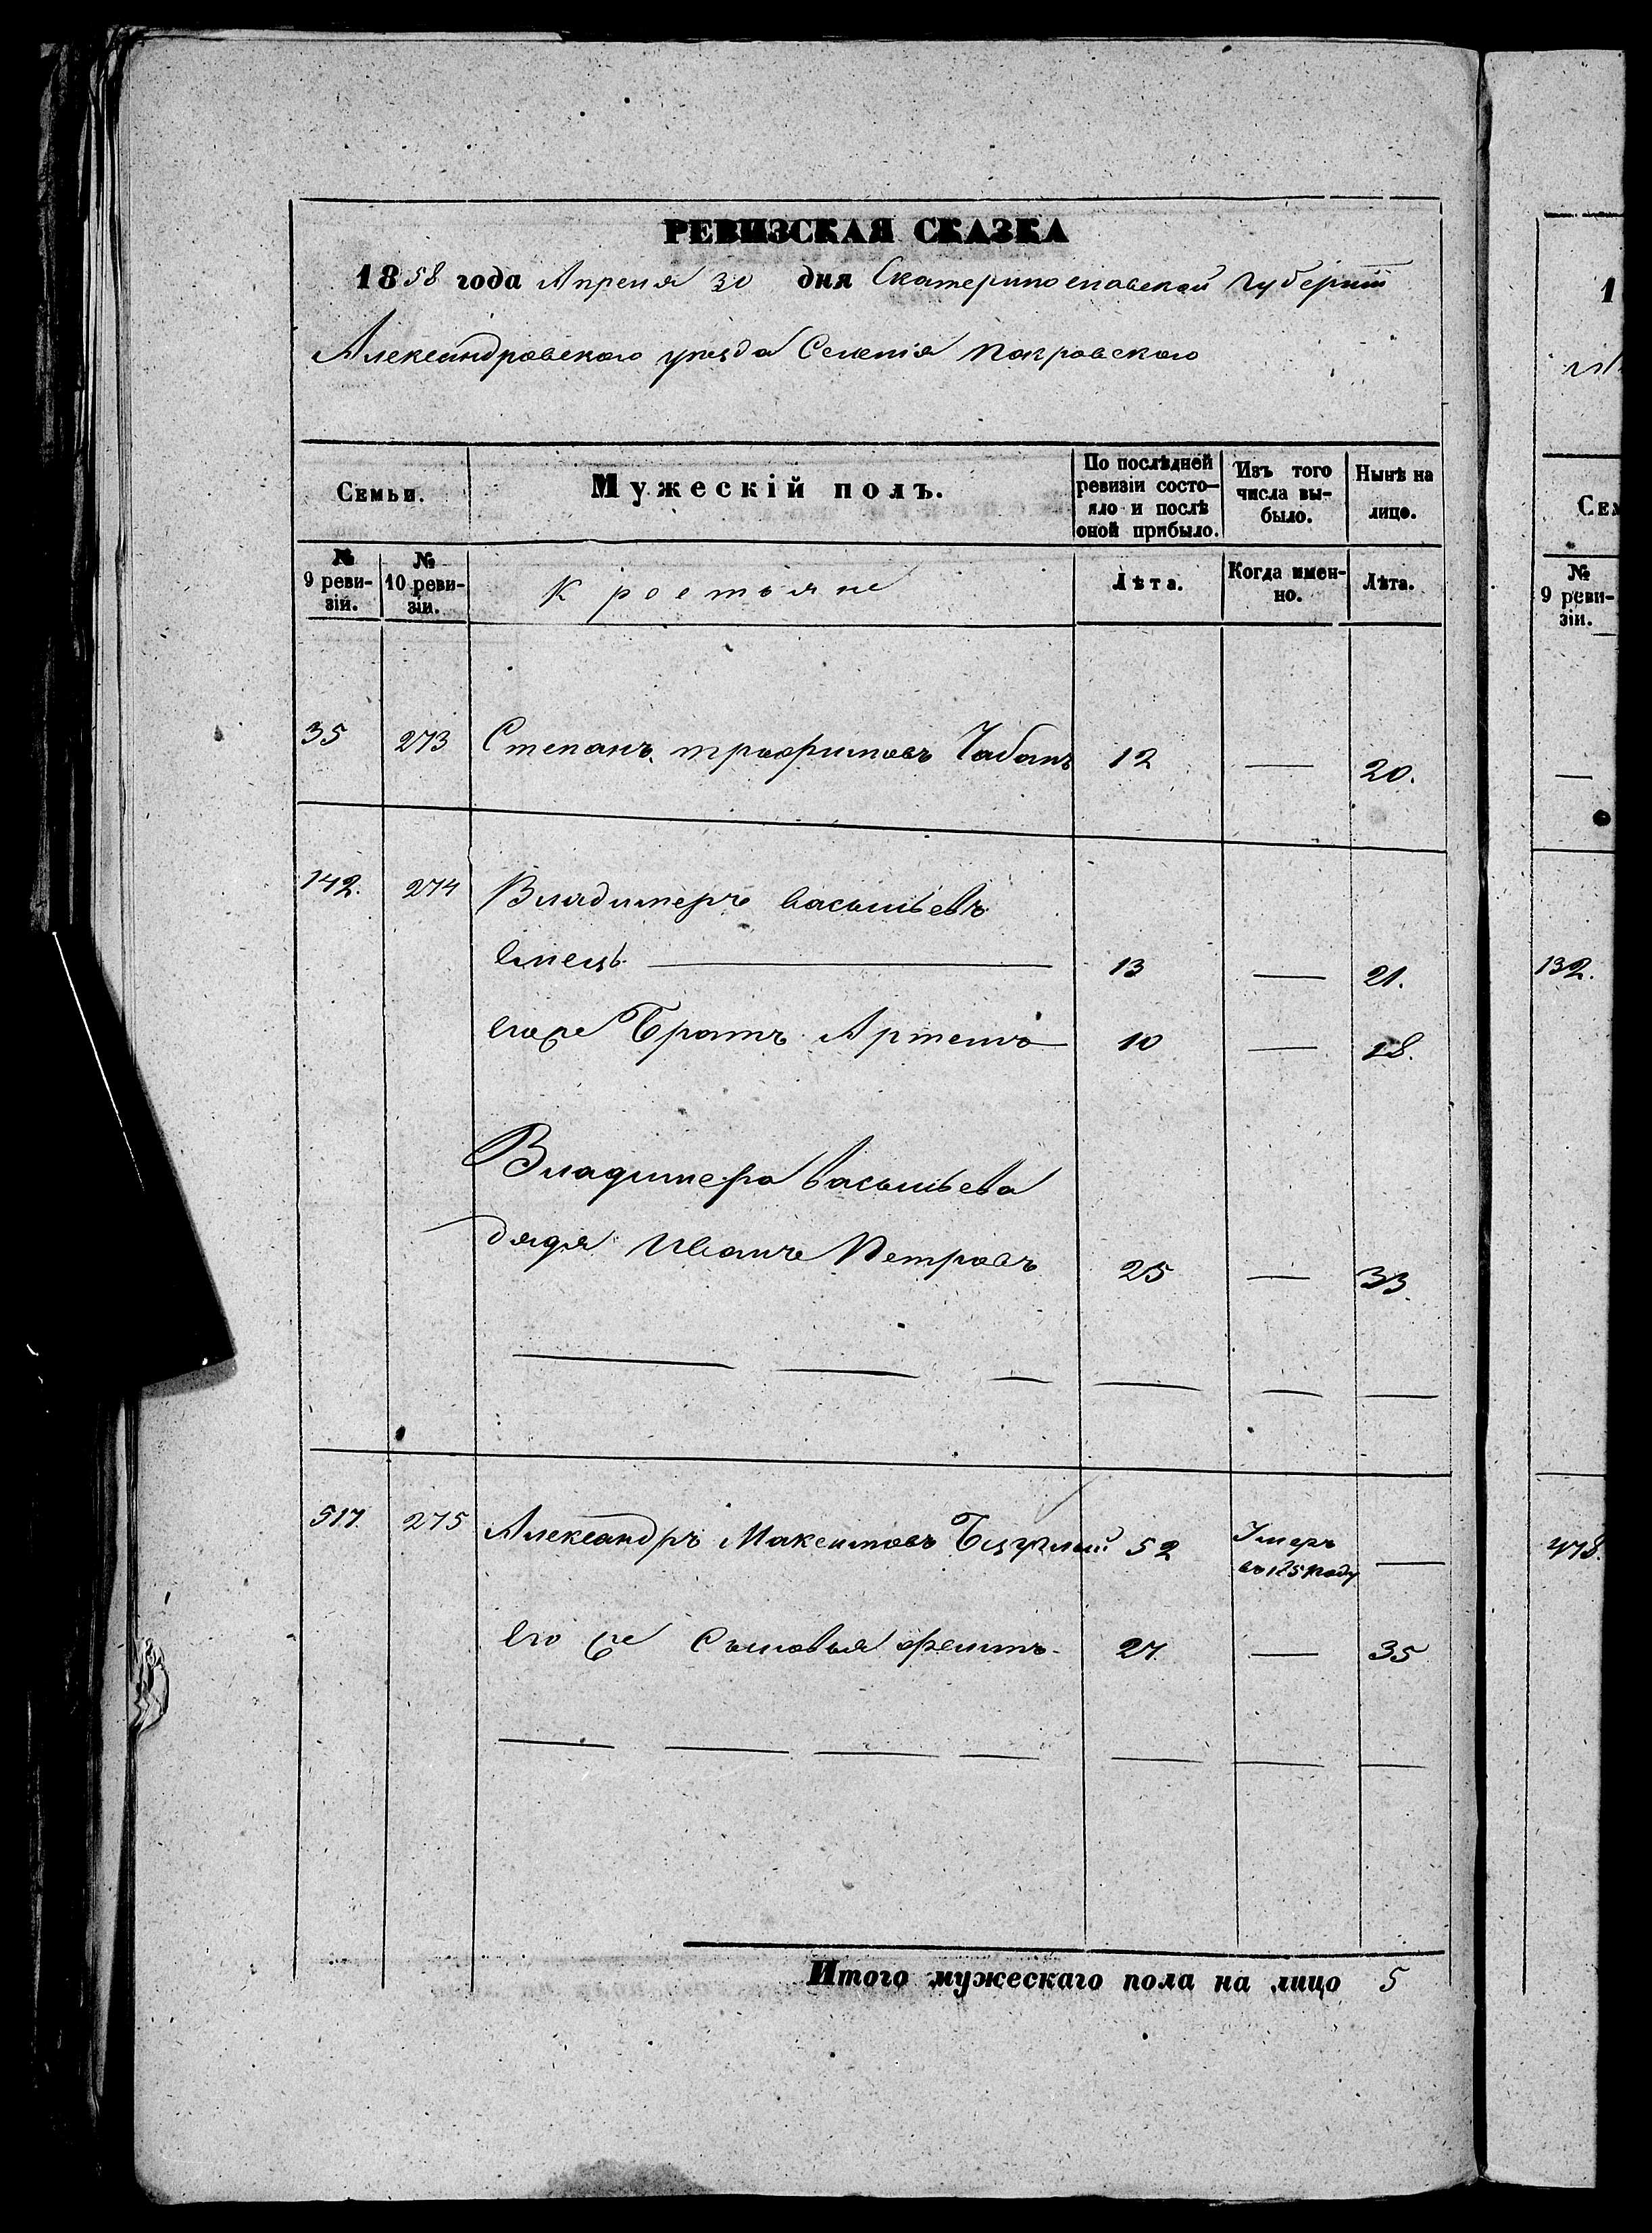 РЕВИЗСКАЯ СКАЗКА
1858 года Апреля 30 дня Екатеринославской Губерніи
Александровскаго уезда Селенія Покровскаго
Семьи.
Мужескій полъ.
По послѣдней ревизіи состо-
яло и послѣ
оной прибыло.
Изъ того
числа вы-
было.
Нынѣ на
лицо.
№
9 реви-
зіи.
№
10 реви-
зіи.
Крестьяне
Лѣта.
Когда имен-
но.
Лѣта.
35 273 Степанъ Трофимовъ Чабанъ 12 — 20.
142. 274 Владимеръ Васильевъ
— 13 — 21.
Егоже Братъ Артемъ 10 — 18.
Владимера Васильева
дядя Иванъ Петровъ 25 — 33.
517. 275 Александръ Максимовъ 52 Умеръ
въ 185 году —
Его же Сыновья 27. — 35
Итого мужескаго пола на лицо 5
1
Сем
№
9 реви-
зіи.
—
132.
478.